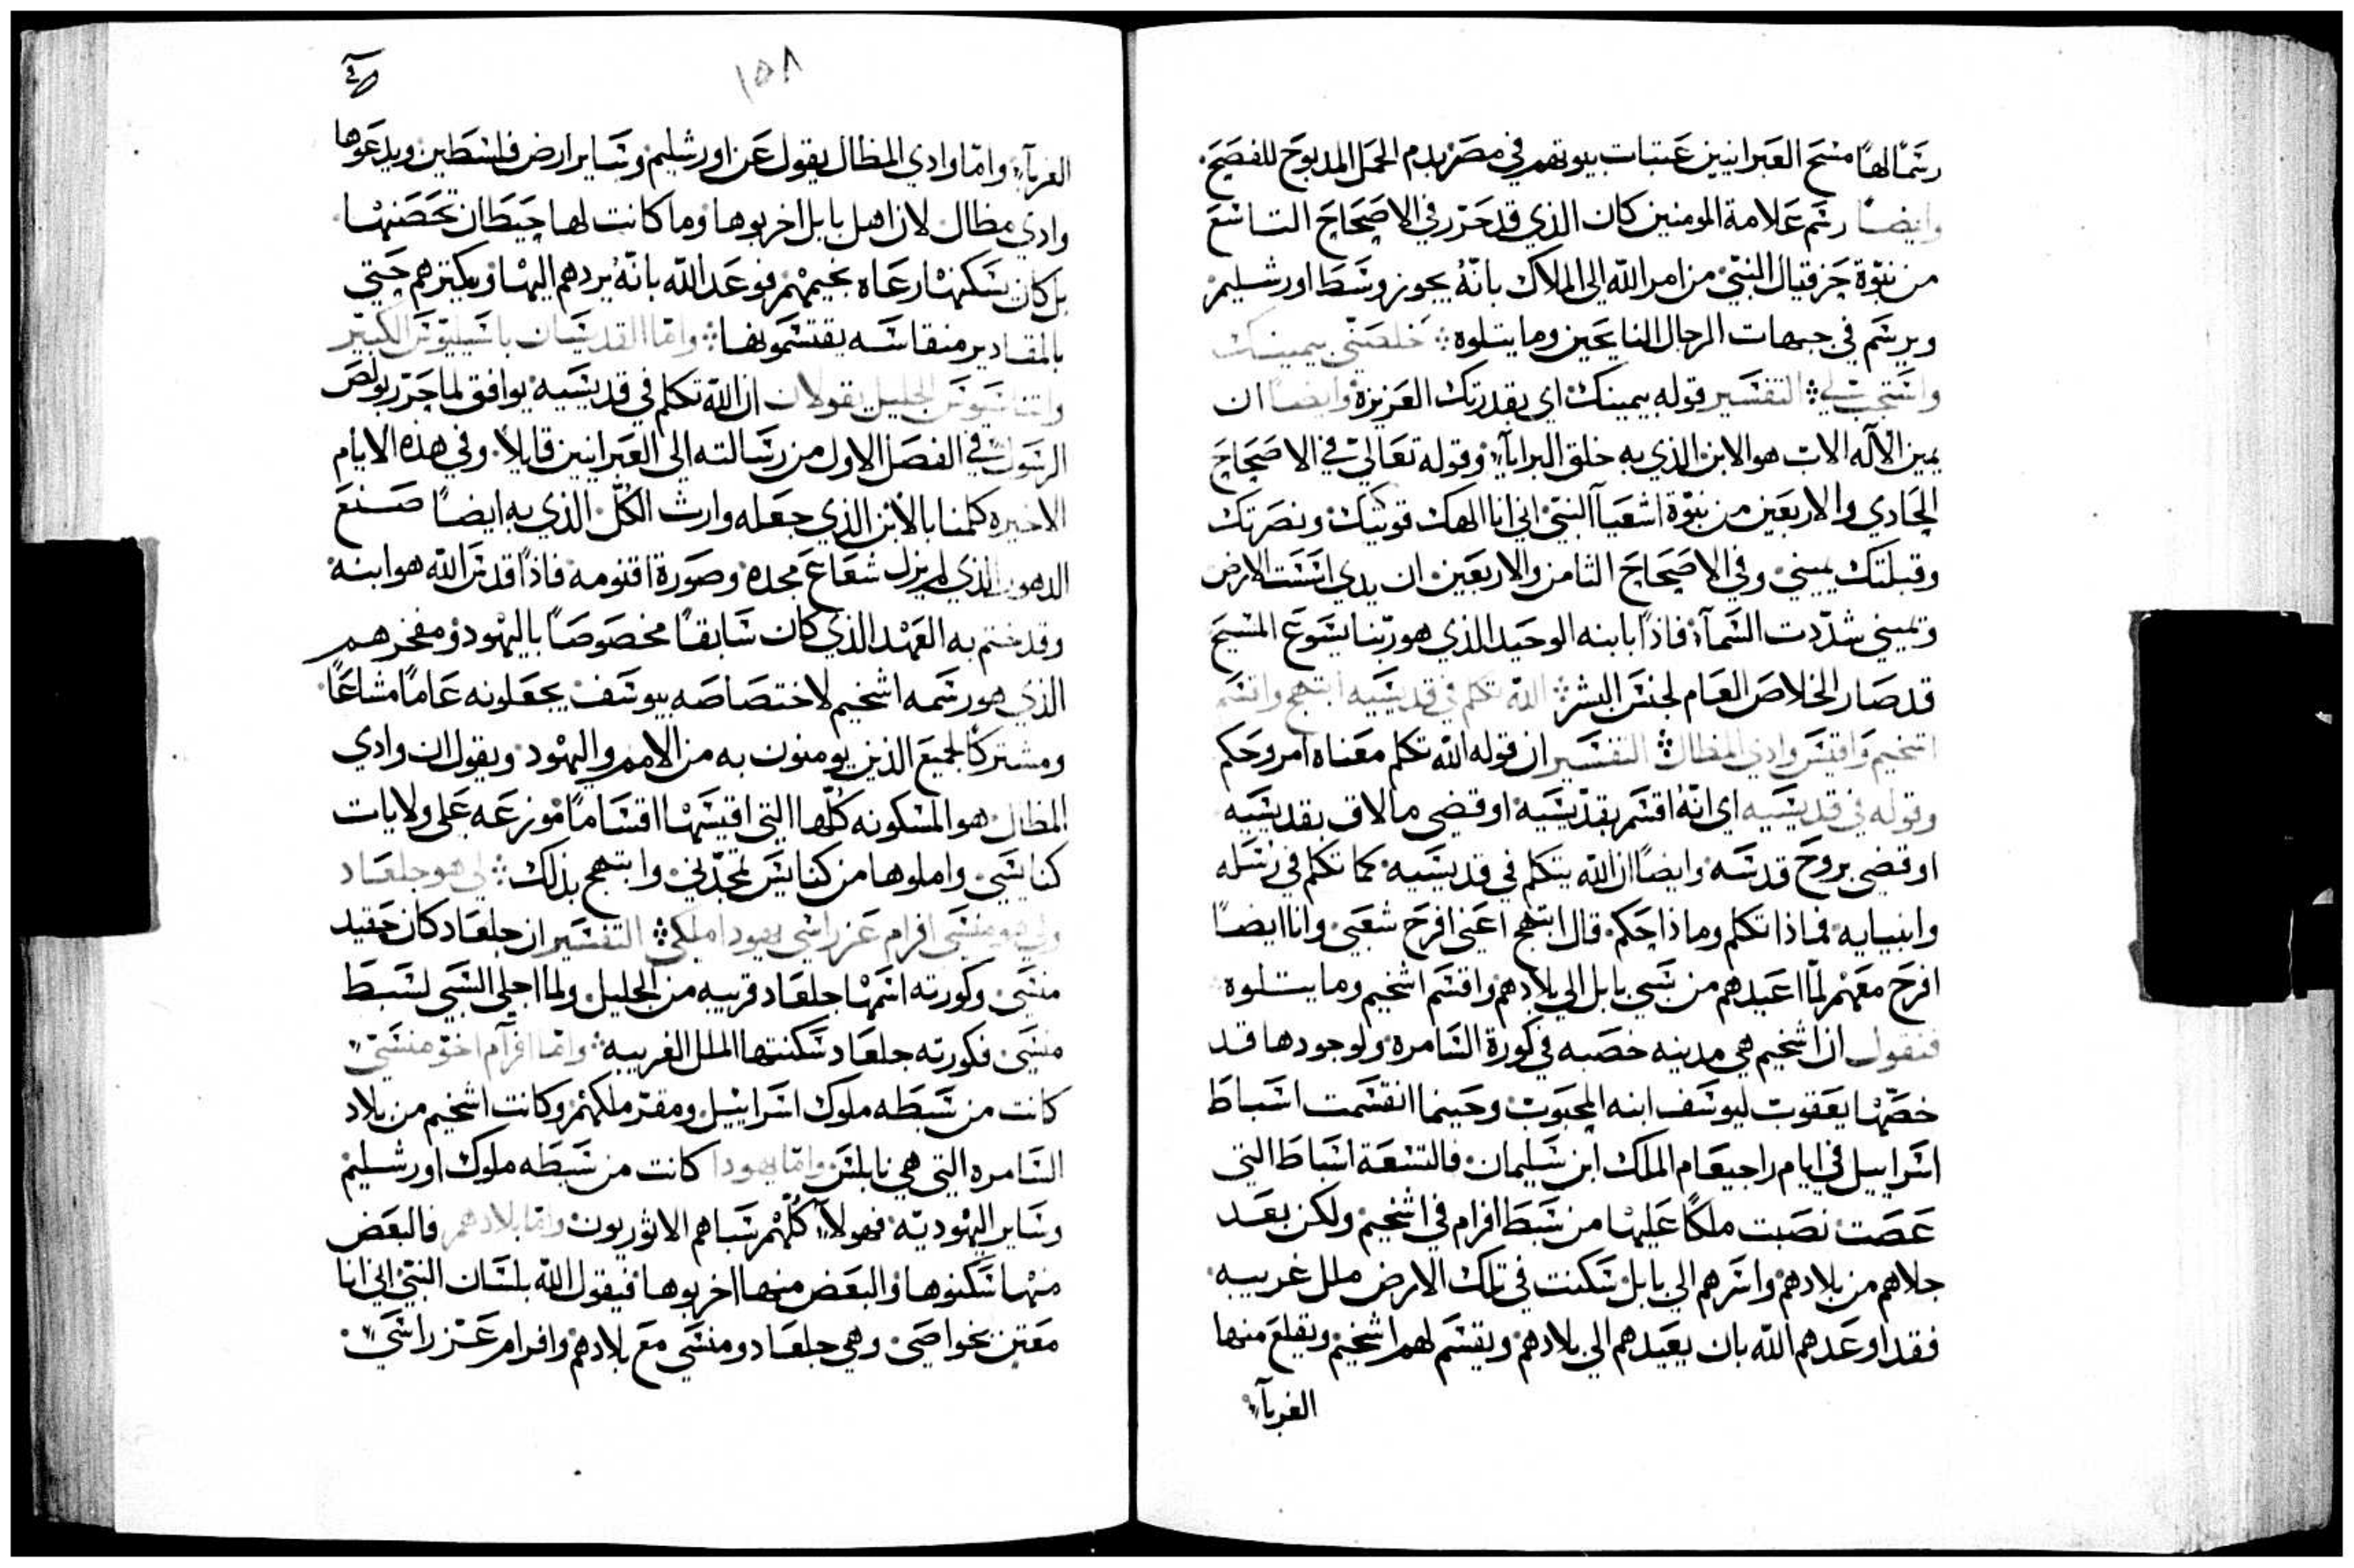 رسمًا لهاً مسح العبرانيين عتبات بيوتهم في مصر بدم الحمل المدبوح للفصح
وايضاً رسم علامة المومنين كان الذي قد حرّر في الاصحاح التاسع
من نبوّة حزقيال النبيّ من امر الله الى الملاك بانّهُ يجوز وسط اورشليم
ويرسم في جبهات الرجال النايحين وما يتلوه خلصنّي بيمينك
واستجب لي التفسير قوله بيمينك اي بقدرتك العزيزة وايضاً ان
يمين الاله الاب هو الابن الذي به خلق البرايآ وقوله تعالى في الاصحاح
الحادي والاربعين من نبوّة اشعيآ النبيّ اني انا الهك قويتك ونصرتك
وقبلتك بيميني وفي الاصحاح الثامن والاربعين ان يدي اسست الارض
ويميني شدّدت السمآ فاذًا بابنه الوحيد الذي هو ربّنا يسوع المسيح
قد صار الخلاص العام لجنس البشر الله تكلم في قديسيه ابتهج واقسم
اشخيم واقيس وادي المظال التفسير ان قوله الله تكلم معناه امر وحكم
وقوله في قديسيه اي انّهُ اقسم بقدّيسيه او قضى ما لاق بقديسيه
او قضى بروح قدسه وايضاً ان الله يتكلم في قديسيه كما تكلم في رسله
وانبيايه فماذا تكلم وماذا حكم قال ابتهج اعني افرح شعبي وانا ايضاً
افرح معهم لمّا اعيدهم من سبي بابل الى بلادهم واقسم اشخيم وما يتلوه
فنقول ان اشخيم هي مدينه خصبه في كورة السامره ولوجودها قد
خصّها يعقوب ليوسف ابنه المحبوب وحينما انقسمت اسباط
اسراييل في ايام راجيعام الملك ابن سليمان فالتسعة اسباط التي
عصت نصبت ملكًا عليها من سبط افرام في اشخيم ولكن بعد
جلاهم من بلادهم واسرهم الى بابل سكنت في تلك الارض ملل غريبه
فقد اوعدهم الله بان يعيدهم الى بلادهم ويقسم لهم اشخيم ويقلع منها
الغربآ
١٥٨
الغربآ وامّا وادي المظال يقول عن اورشليم وساير ارض فلسطين ويدعوها
وادي مظال لان اهل بابل اخربوها وما كانت لها حيطان تحصنها
بل كان يسكنها رعاه بخيمهم فوعد الله بانّهُ يردهم اليها ويكثرهم حتي
بالمقادير منقاسه يقتسمونها وامّا القديسان باسيليوس الكبير
واثناسيوس الجليل يقولان ان الله تكلم في قديسيه يوافق لما حرّر بولص
الرسول في الفصل الاول من رسالته الى العبرانيين قايلاً وفي هذه الايام
الاخيره كلمنا بالابن الذي جعله وارث الكلّ الذي به ايضاً صنع
الدهور الذي لم يزل شعاع مجده وصورة اقنومه فاذًا قدس الله هو ابنه
وقد ختم به العهد الذي كان سابقاً مخصوصاً باليهود ومفخرهم
الذي هو رسمه اشخيم لاختصاصه بيوسف يجعلونه عامًا مشاعًا
ومشتركًا لجميع الذين يومنون به من الامم واليهود ويقول ان وادي
المظال هو المسكونه كلّها التي اقيسها اقسامًا موزعه على ولايات
كنايسي واملوها من كنايس تمجّدني وابتهج بذلك لي هو جلعاد
ولي هو منسي افرام عز راسي يهودا ملكي التفسير ان جلعاد كان حفيد
منسي وكورته اسمها جلعاد قريبه من الجليل ولما اجلى السبي لسبط
منسي فكورته جلعاد سكنتها الملل الغريبه وامّا افرآم اخو منسيّ
كانت من سبطه ملوك اسراييل ومقرّ ملكهم وكانت اشخيم من بلاد
السامره التي هي نابلس وامّا يهودا كانت من سبطه ملوك اورشليم
وساير اليهوديّه فهولآ كلّهم سباهم الاثوريون وامّا بلادهم فالبعض
منها سكنوها والبعض منها اخربوها فيقول الله بلسان النبيّ اني انا
معتن بخواصي وهي جلعاد ومنسي مع بلادهم وافرام عز راسي